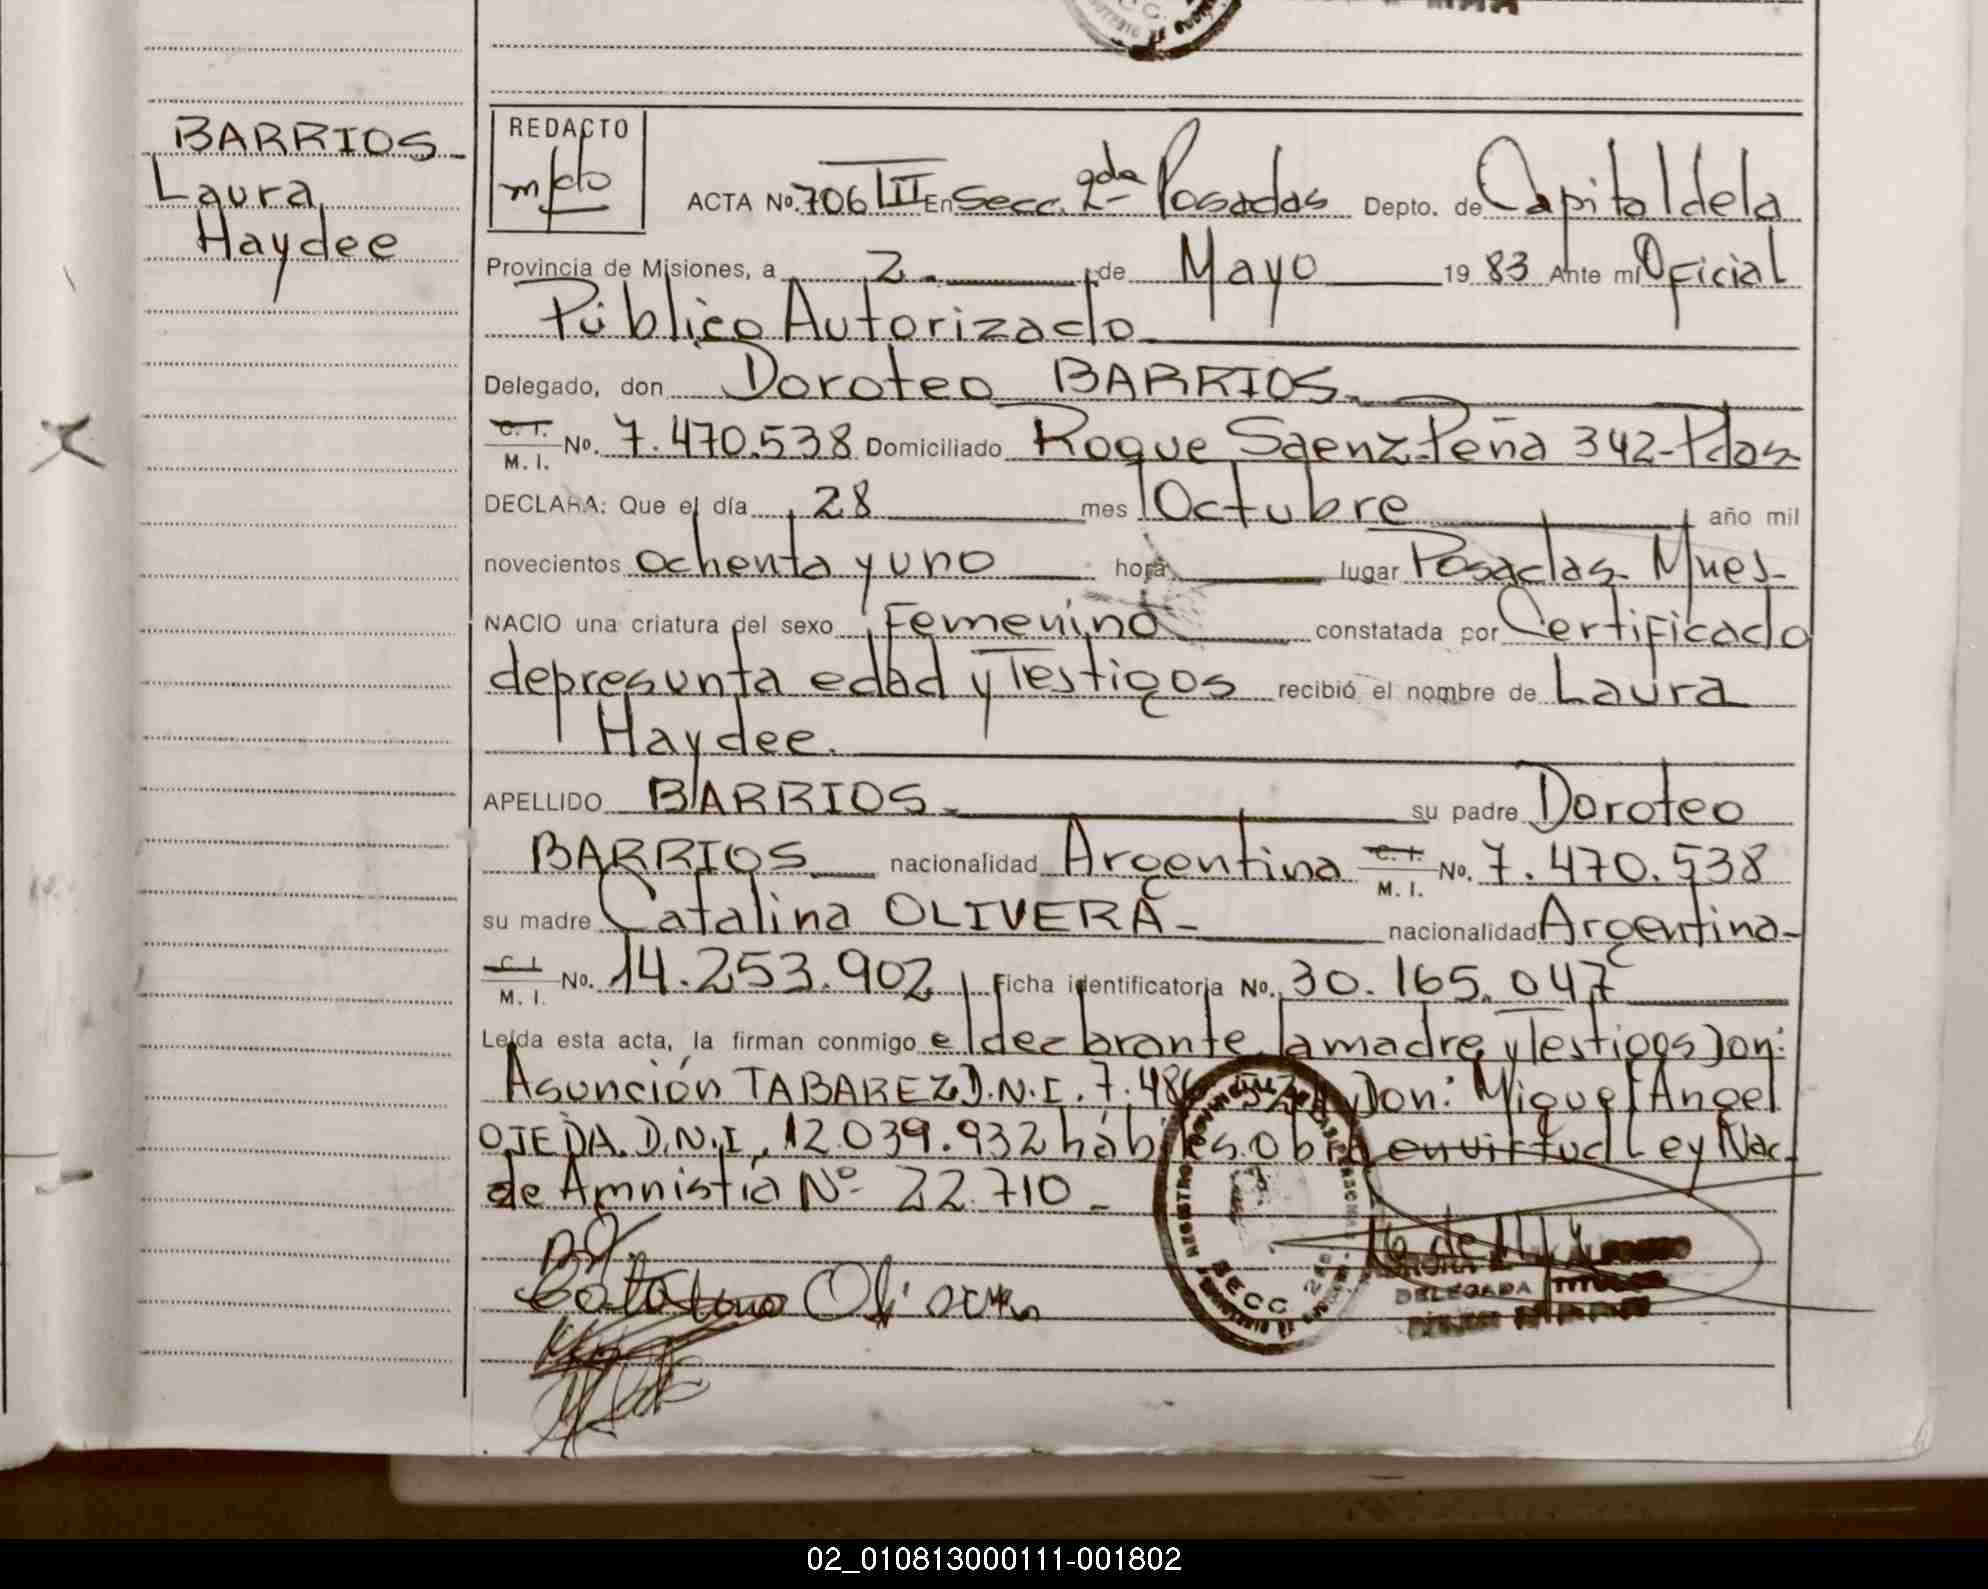 BARRIOS
Laura
Haydee
REDACTO
ACTA Nº. 706 III En Secc. 2da Posadas Depto. de Capital de la
Provincia de Misiones, a 2 de Mayo 19 83 Ante mi Oficial
Público Autorizado
Delegado, don Doroteo BARRIOS
C. I. M. I. No. 7.470.538 Domiciliado Roque Saenz Peña 342 - Pdas
DECLARA: Que el día 28 mes Octubre año mil
novecientos ochenta y uno hora lugar Posadas Mnes-
NACIO una criatura del sexo Femenino constatada por Certificado
de presunta edad y Testigos recibió el nombre de Laura
Haydee.
APELLIDO BARRIOS su padre Doroteo
BARRIOS nacionalidad Argentina C. I. M. I. No. 7.470.538
su madre Catalina OLIVERA nacionalidad Argentina-
C. I. M. I. No. 14.253.902 Ficha identificatoria No. 30.165.047
Leída esta acta, la firman conmigo el declarante la madre y Testigos Don:
Asunción TABAREZ D.N.I. 7.48 Don: Miguel Angel
OJEDA. D.N.I. 12.039.932 hábiles. obra en virtud Ley Nac.
de Amnistía Nº 22.710
Catalina Olivera
REGISTRO
SECC. 2da
DELEGADA TITULAR
02_010813000111-001802